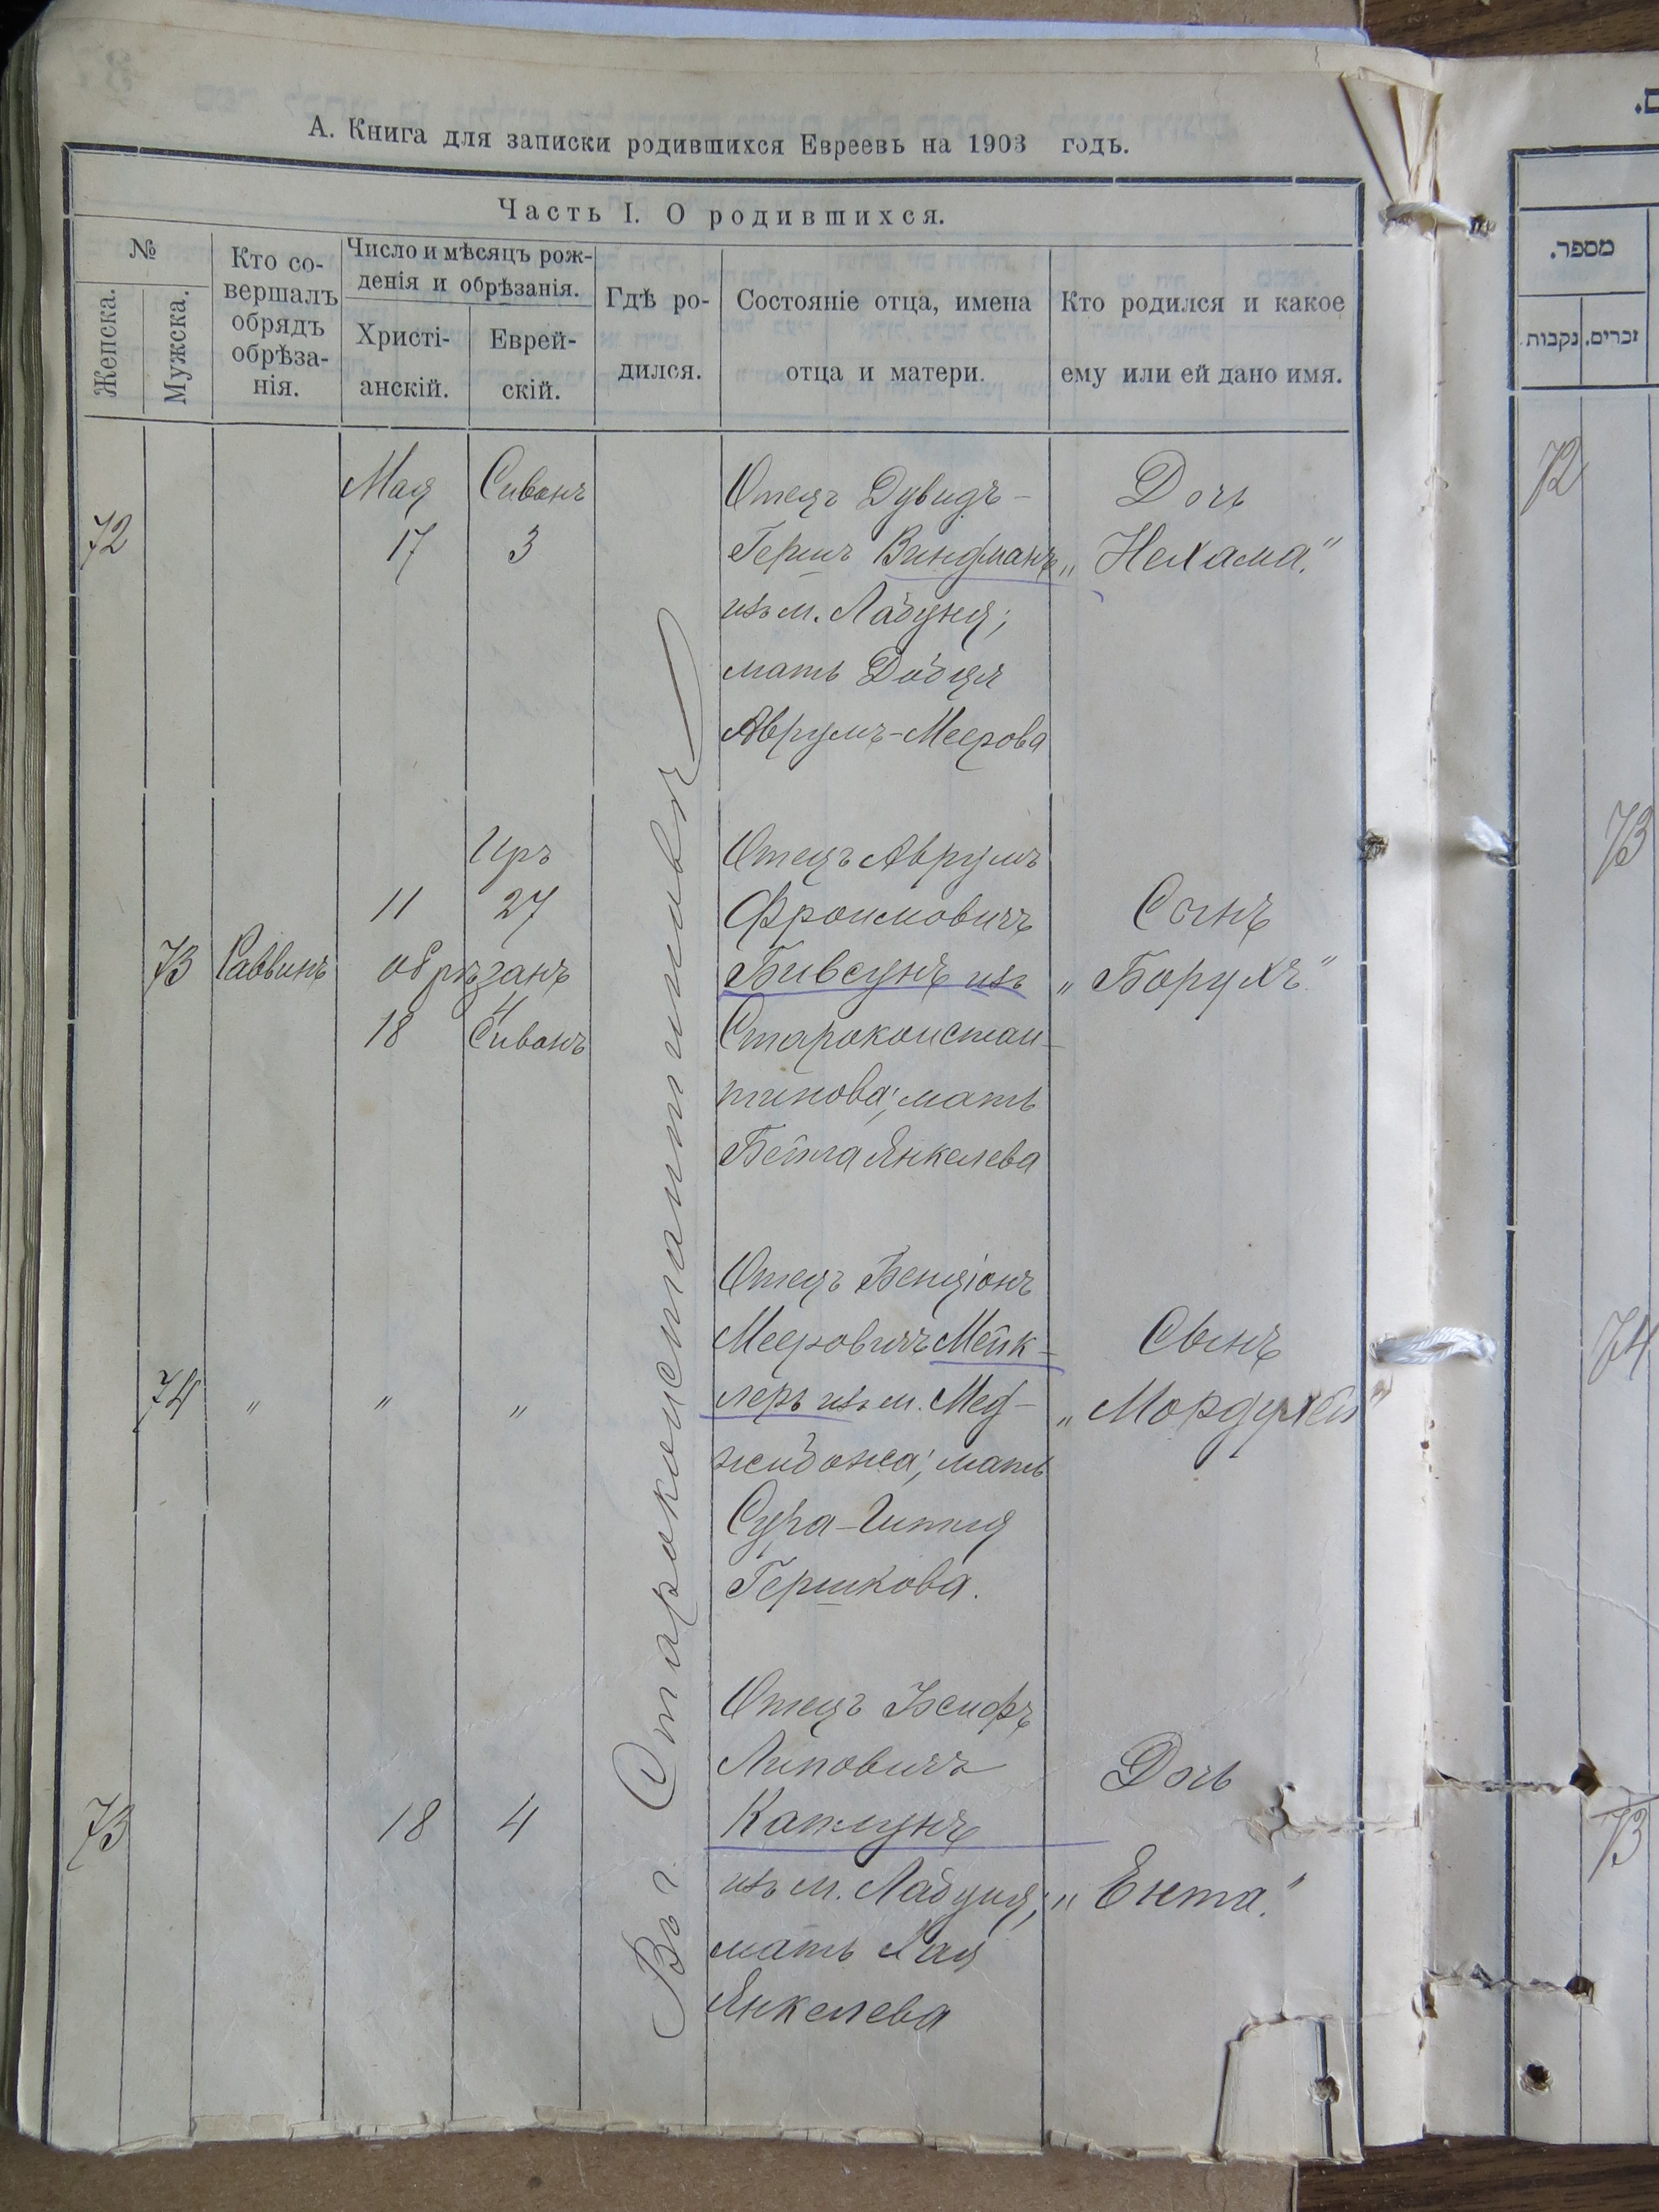 А. Книга для записки родившихся Евреевъ на 1903 годъ.
Часть I. О родившихся.
№
Женска.
Мужска.
Кто со-
вершалъ
обрядъ
обрѣза-
нія.
Число и мѣсяцъ рож-
денія и обрѣзанія.
Христі-
анскій.
Еврей-
скій.
Гдѣ ро-
дился.
Состояніе отца, имена
отца и матери.
Кто родился и какое
ему или ей дано имя.
מספר.
נקבות
זכרים.
Въ г. Староконстантиновѣ
72
Мая
17
Сиванъ
3
Отецъ Дувидъ-
Гершъ Винфманъ
изъ м. Лабуня;
мать Добця
Аврумъ-Меерова
Дочь
„Нехама."
72
73
Раввинъ
11
Иръ
27
обрѣзанъ
18
4
Сиванъ
Отецъ Аврумъ
Фроимовичъ
Бивсунъ изъ
Староконстан-
тинова; мать
Бейла Янкелева
Сынъ
„Борухъ."
73
74
"
"
"
Отецъ Бенціонъ
Мееровичъ Мейк-
леръ изъ м. Мед-
жибожа; мать
Сура-Гитля
Гершкова.
Сынъ
„Мордухей"
74
73
18
4
Отецъ Іосифъ
Липовичъ
Каплунъ
изъ м. Лабуня;
мать Хая
Янкелева
Дочь
„Ента."
73